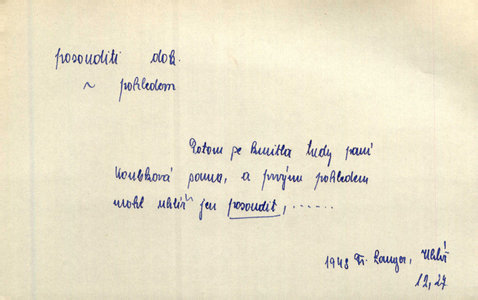 posouditi dok.
~ pohledem
Potom se kmitla tudy paní
Koubková sama, a prvým pohledem
mohl uhlíř jen posoudit, ......
1948 Fr. Langer, Uhlíř
12, 27